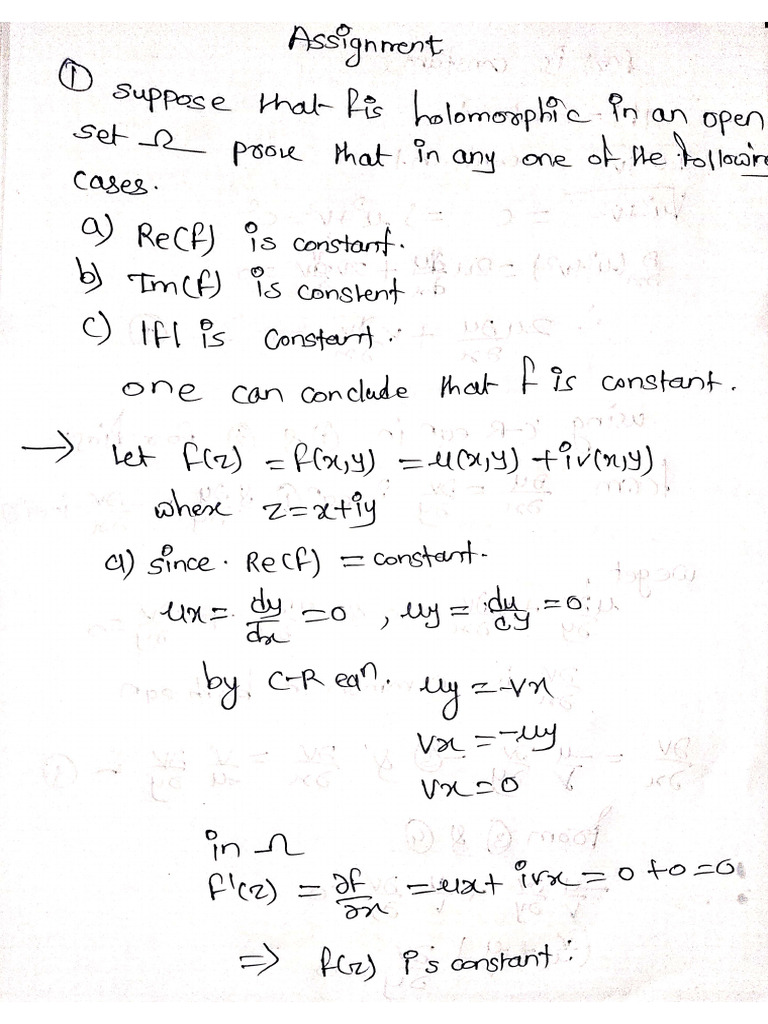 Assignment
① suppose that f is holomorphic in an open
set Ω prove that in any one of the following
cases.
a) Re(f) is constant.
b) Im(f) is constent
c) |f| is constant.
one can conclude that f is constant.
→ Let f(z) = f(x,y) = u(x,y) + iv(x,y)
where z = x+iy
a) since. Re(f) = constant.
ux = dy/dx = 0 , uy = du/dy = 0
by C-R eqn. uy = -vx
vx = -uy
vx = 0
in Ω
f'(z) = ∂f/∂x = ux + ivx = 0 + 0 = 0
⇒ f(z) is constant.